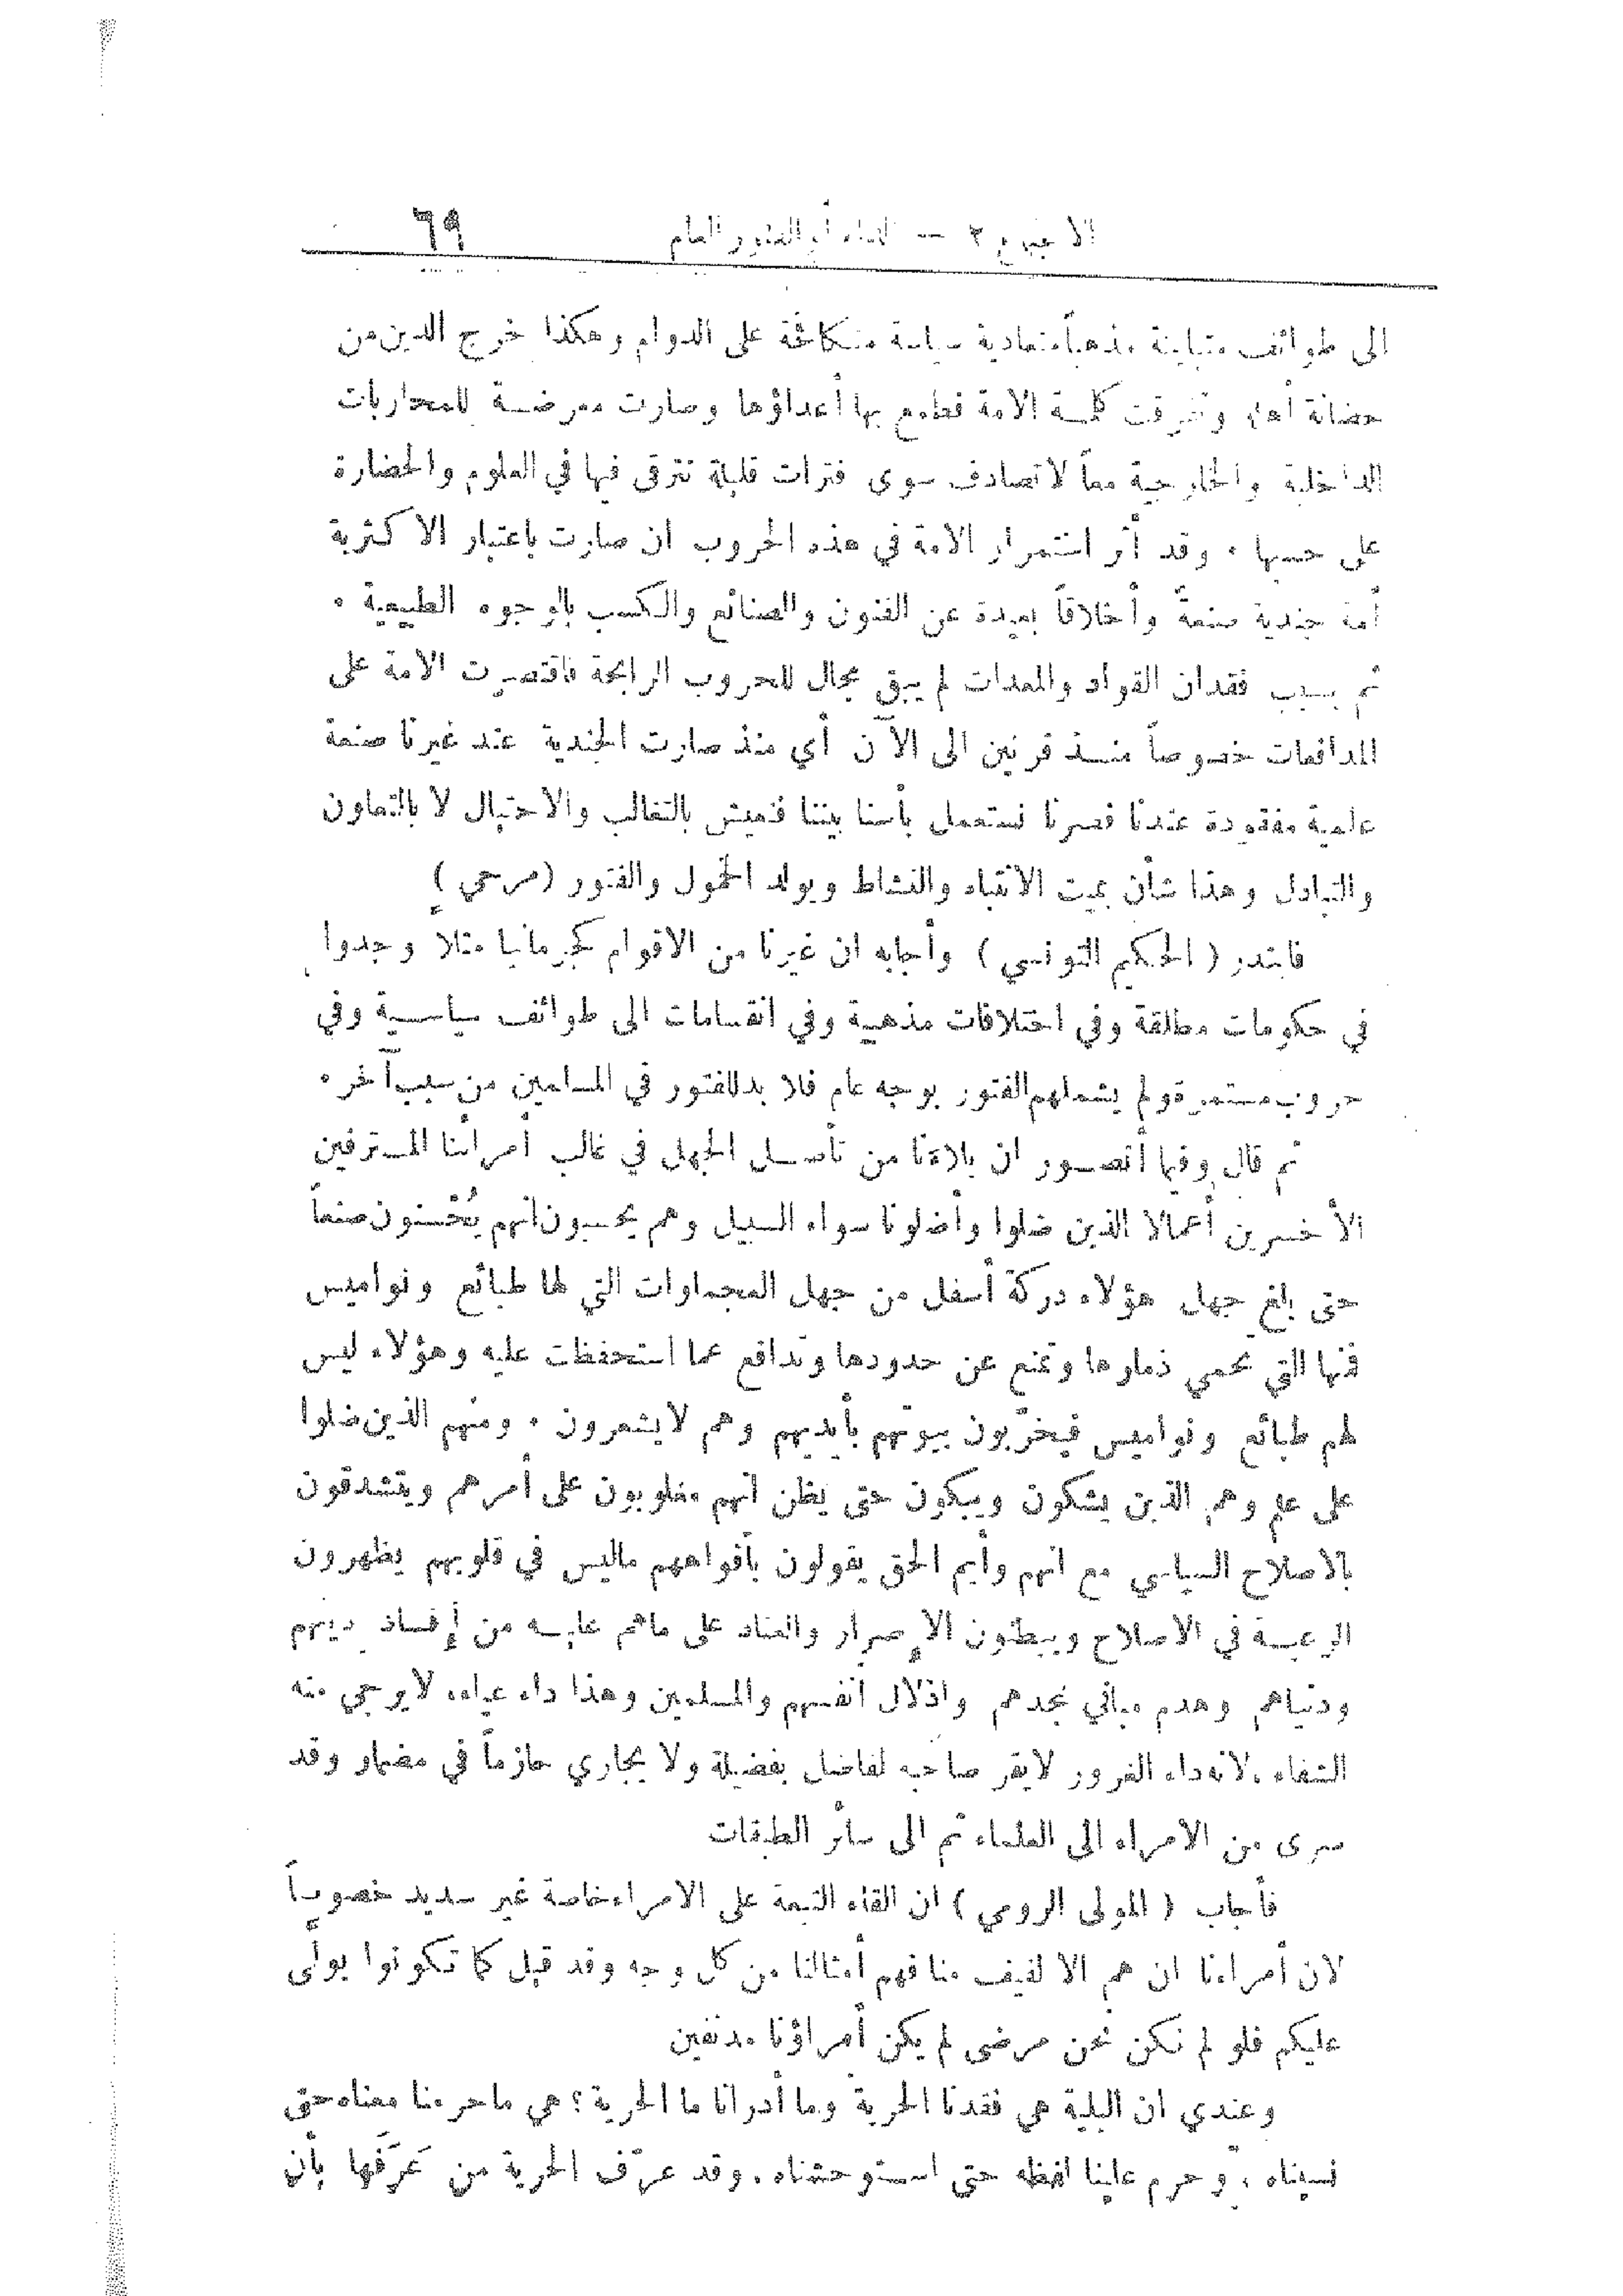 الاجتماع ٢ — الداء أو الفتور العام ٦٩
الى طوائف متباينة مذهباً متعادية سياسة متكافحة على الدوام وهكذا خرج الدين من
حضانة أهله وتفرقت كلمة الامة فطمع بها أعداؤها وصارت معرضة للمحاربات
الداخلية والخارجية معاً لا تصادف سوى فترات قليلة تترقى فيها في العلوم والحضارة
على حسبها . وقد أثر استمرار الامة في هذه الحروب ان صارت باعتبار الاكثرية
أمة جندية صنعةً وأخلاقاً بعيدة عن الفنون والصنائع والكسب بالوجوه الطبيعية .
ثم بسبب فقدان القواد والمعدات لم يبق مجال للحروب الرابحة فاقتصرت الامة على
المدافعات خصوصاً منذ قرنين الى الآن أي منذ صارت الجندية عند غيرنا صنعة
علمية مفقودة عندنا فصرنا نستعمل بأسنا بيننا فنعيش بالتغالب والاحتيال لا بالتعاون
والتبادل وهذا شأن يميت الانتباه والنشاط ويولد الخمول والفتور (مرحى)
فابتدر ( الحكيم التونسي ) وأجابه ان غيرنا من الاقوام كجرمانيا مثلا وجدوا
في حكومات مطلقة وفي اختلافات مذهبية وفي انقسامات الى طوائف سياسية وفي
حروب مستمرة ولم يشملهم الفتور بوجه عام فلا بد للفتور في المسلمين من سبب آخر .
ثم قال وفيما أتصور ان بلاءنا من تأصل الجهل في غالب أمرائنا المترفين
الأخسرين أعمالا الذين ضلوا وأضلونا سواء السبيل وهم يحسبون انهم يُحسنون صنعاً
حتى بلغ جهل هؤلاء دركة أسفل من جهل العجماوات التي لها طبائع ونواميس
فمنها التي تحمي ذمارها وتمنع عن حدودها وتدافع عما استحفظت عليه وهؤلاء ليس
لهم طبائع ونواميس فيخرّبون بيوتهم بأيديهم وهم لا يشعرون . ومنهم الذين ضلوا
على علم وهم الذين يشكون ويبكون حتى يظن انهم مغلوبون على أمرهم ويتشدقون
بالاصلاح السياسي مع انهم وأيم الحق يقولون بأفواههم ماليس في قلوبهم يظهرون
الرغبة في الاصلاح ويبطنون الإصرار والعناد على ماهم عليه من إفساد دينهم
ودنياهم وهدم مباني مجدهم واذلال انفسهم والمسلمين وهذا داء عياء لا يرجى منه
الشفاء . لانه داء الغرور لا يقر صاحبه لفاضل بفضيلة ولا يجاري حازماً في مضمار وقد
سرى من الامراء الى العلماء ثم الى سائر الطبقات
فأجاب ( المولى الرومي ) ان القاء التبعة على الامراء خاصة غير سديد خصوصاً
لان أمراءنا ان هم الا لفيف منا فهم أمثالنا من كل وجه وقد قيل كما تكونوا يولّى
عليكم فلو لم نكن نحن مرضى لم يكن أمراؤنا مدنفين
وعندي ان البلية هي فقدنا الحرية وما أدرانا ما الحرية ؟ هي ما حرمنا معناه حتى
نسيناه ، وحرم علينا لفظه حتى استوحشناه . وقد عرّف الحرية من عَرَفها بأن